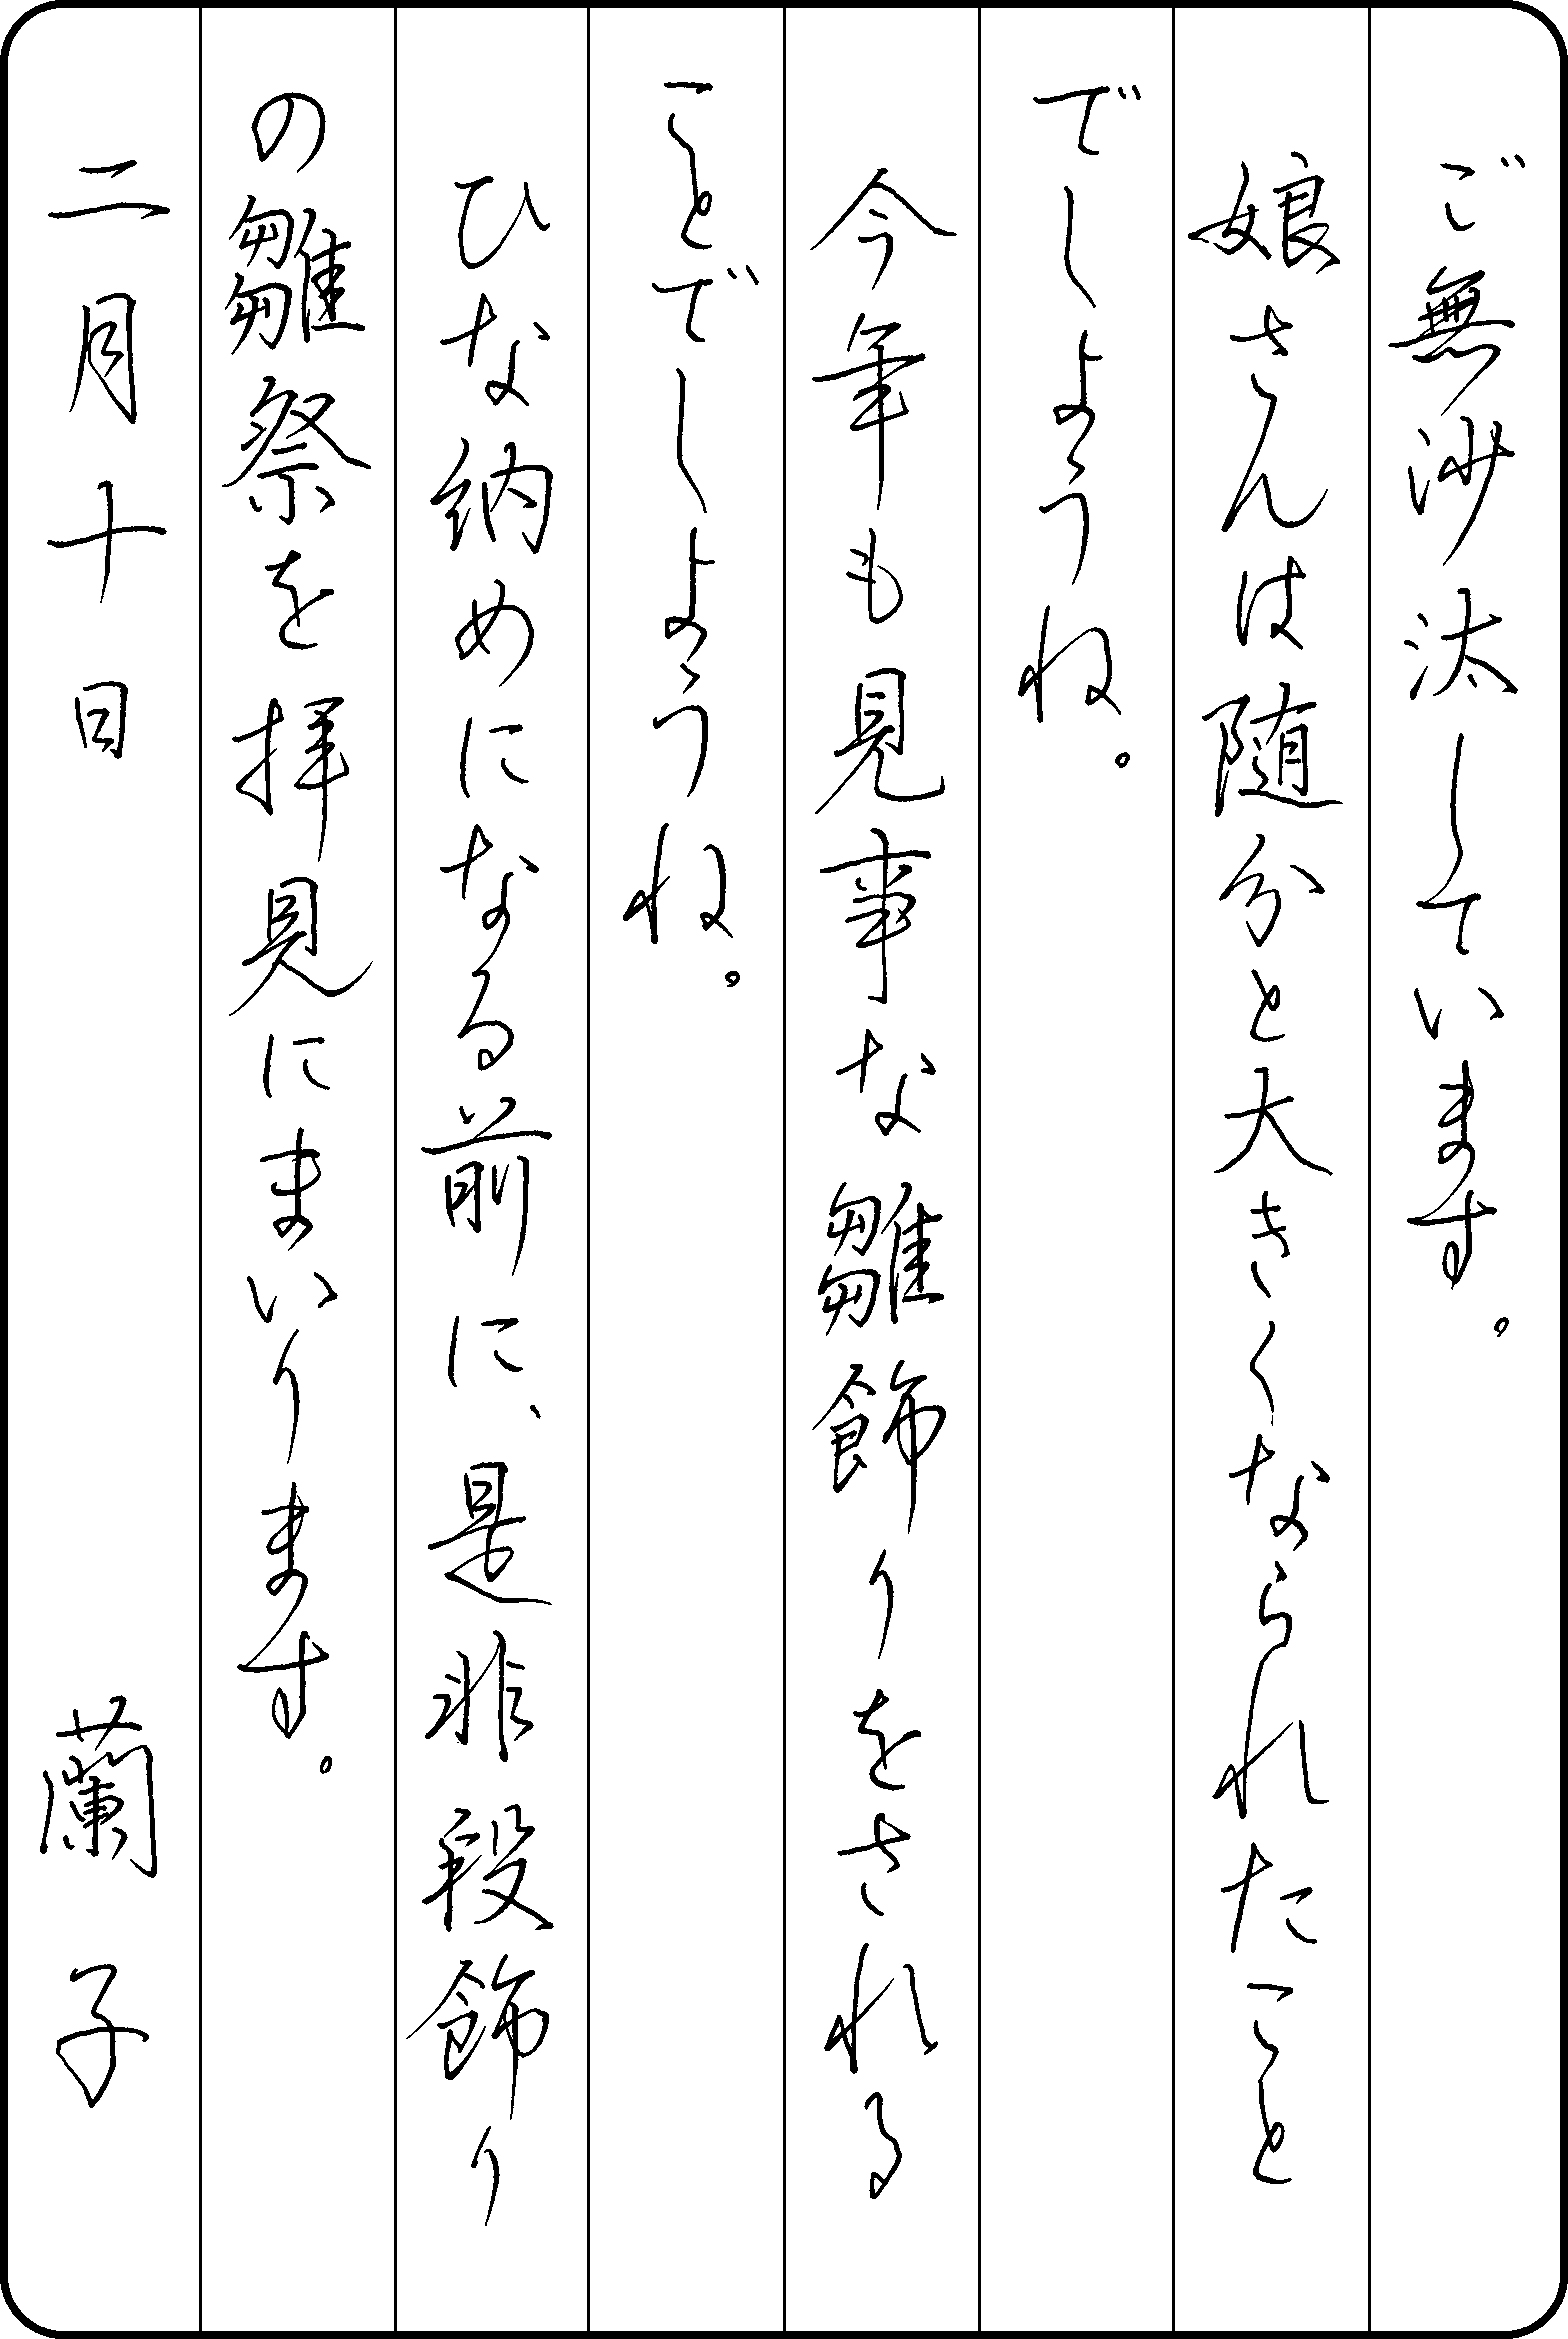 ご無沙汰しています。
娘さんは随分と大きくなられたこと
でしょうね。
今年も見事な雛飾りをされる
ことでしょうね。
ひな納めになる前に、是非段飾り
の雛祭を拝見にまいります。
二月十日 蘭子